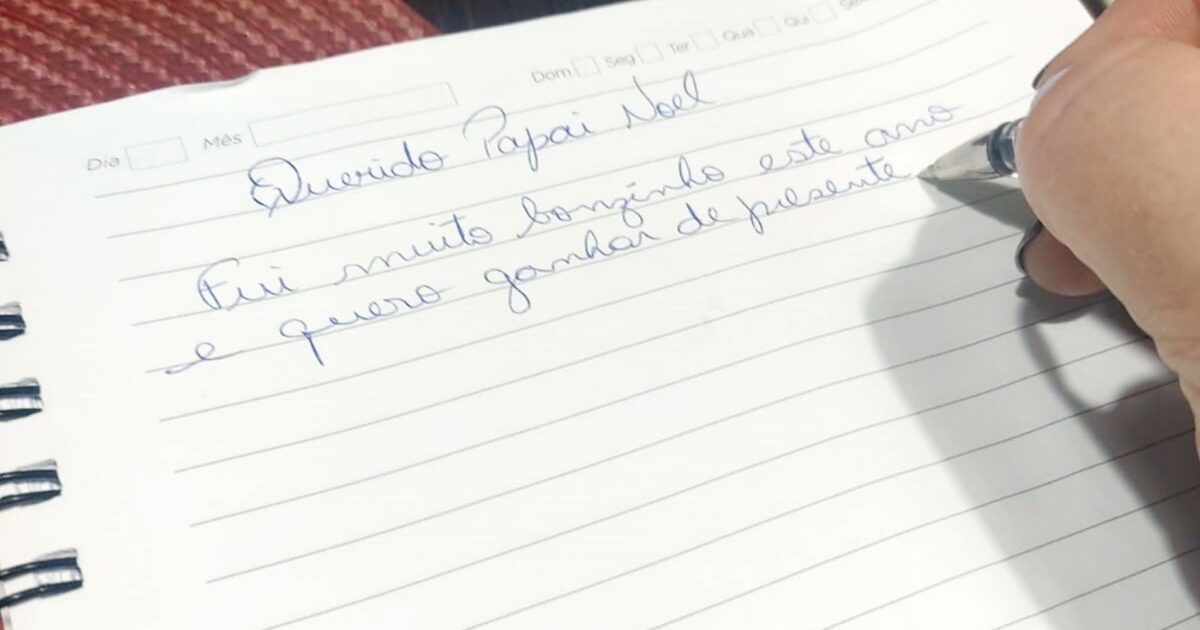 Dom Seg Ter Qua Qui Se
Dia Mês
Querido Papai Noel
Fui muito bonzinho este ano
e quero ganhar de presente